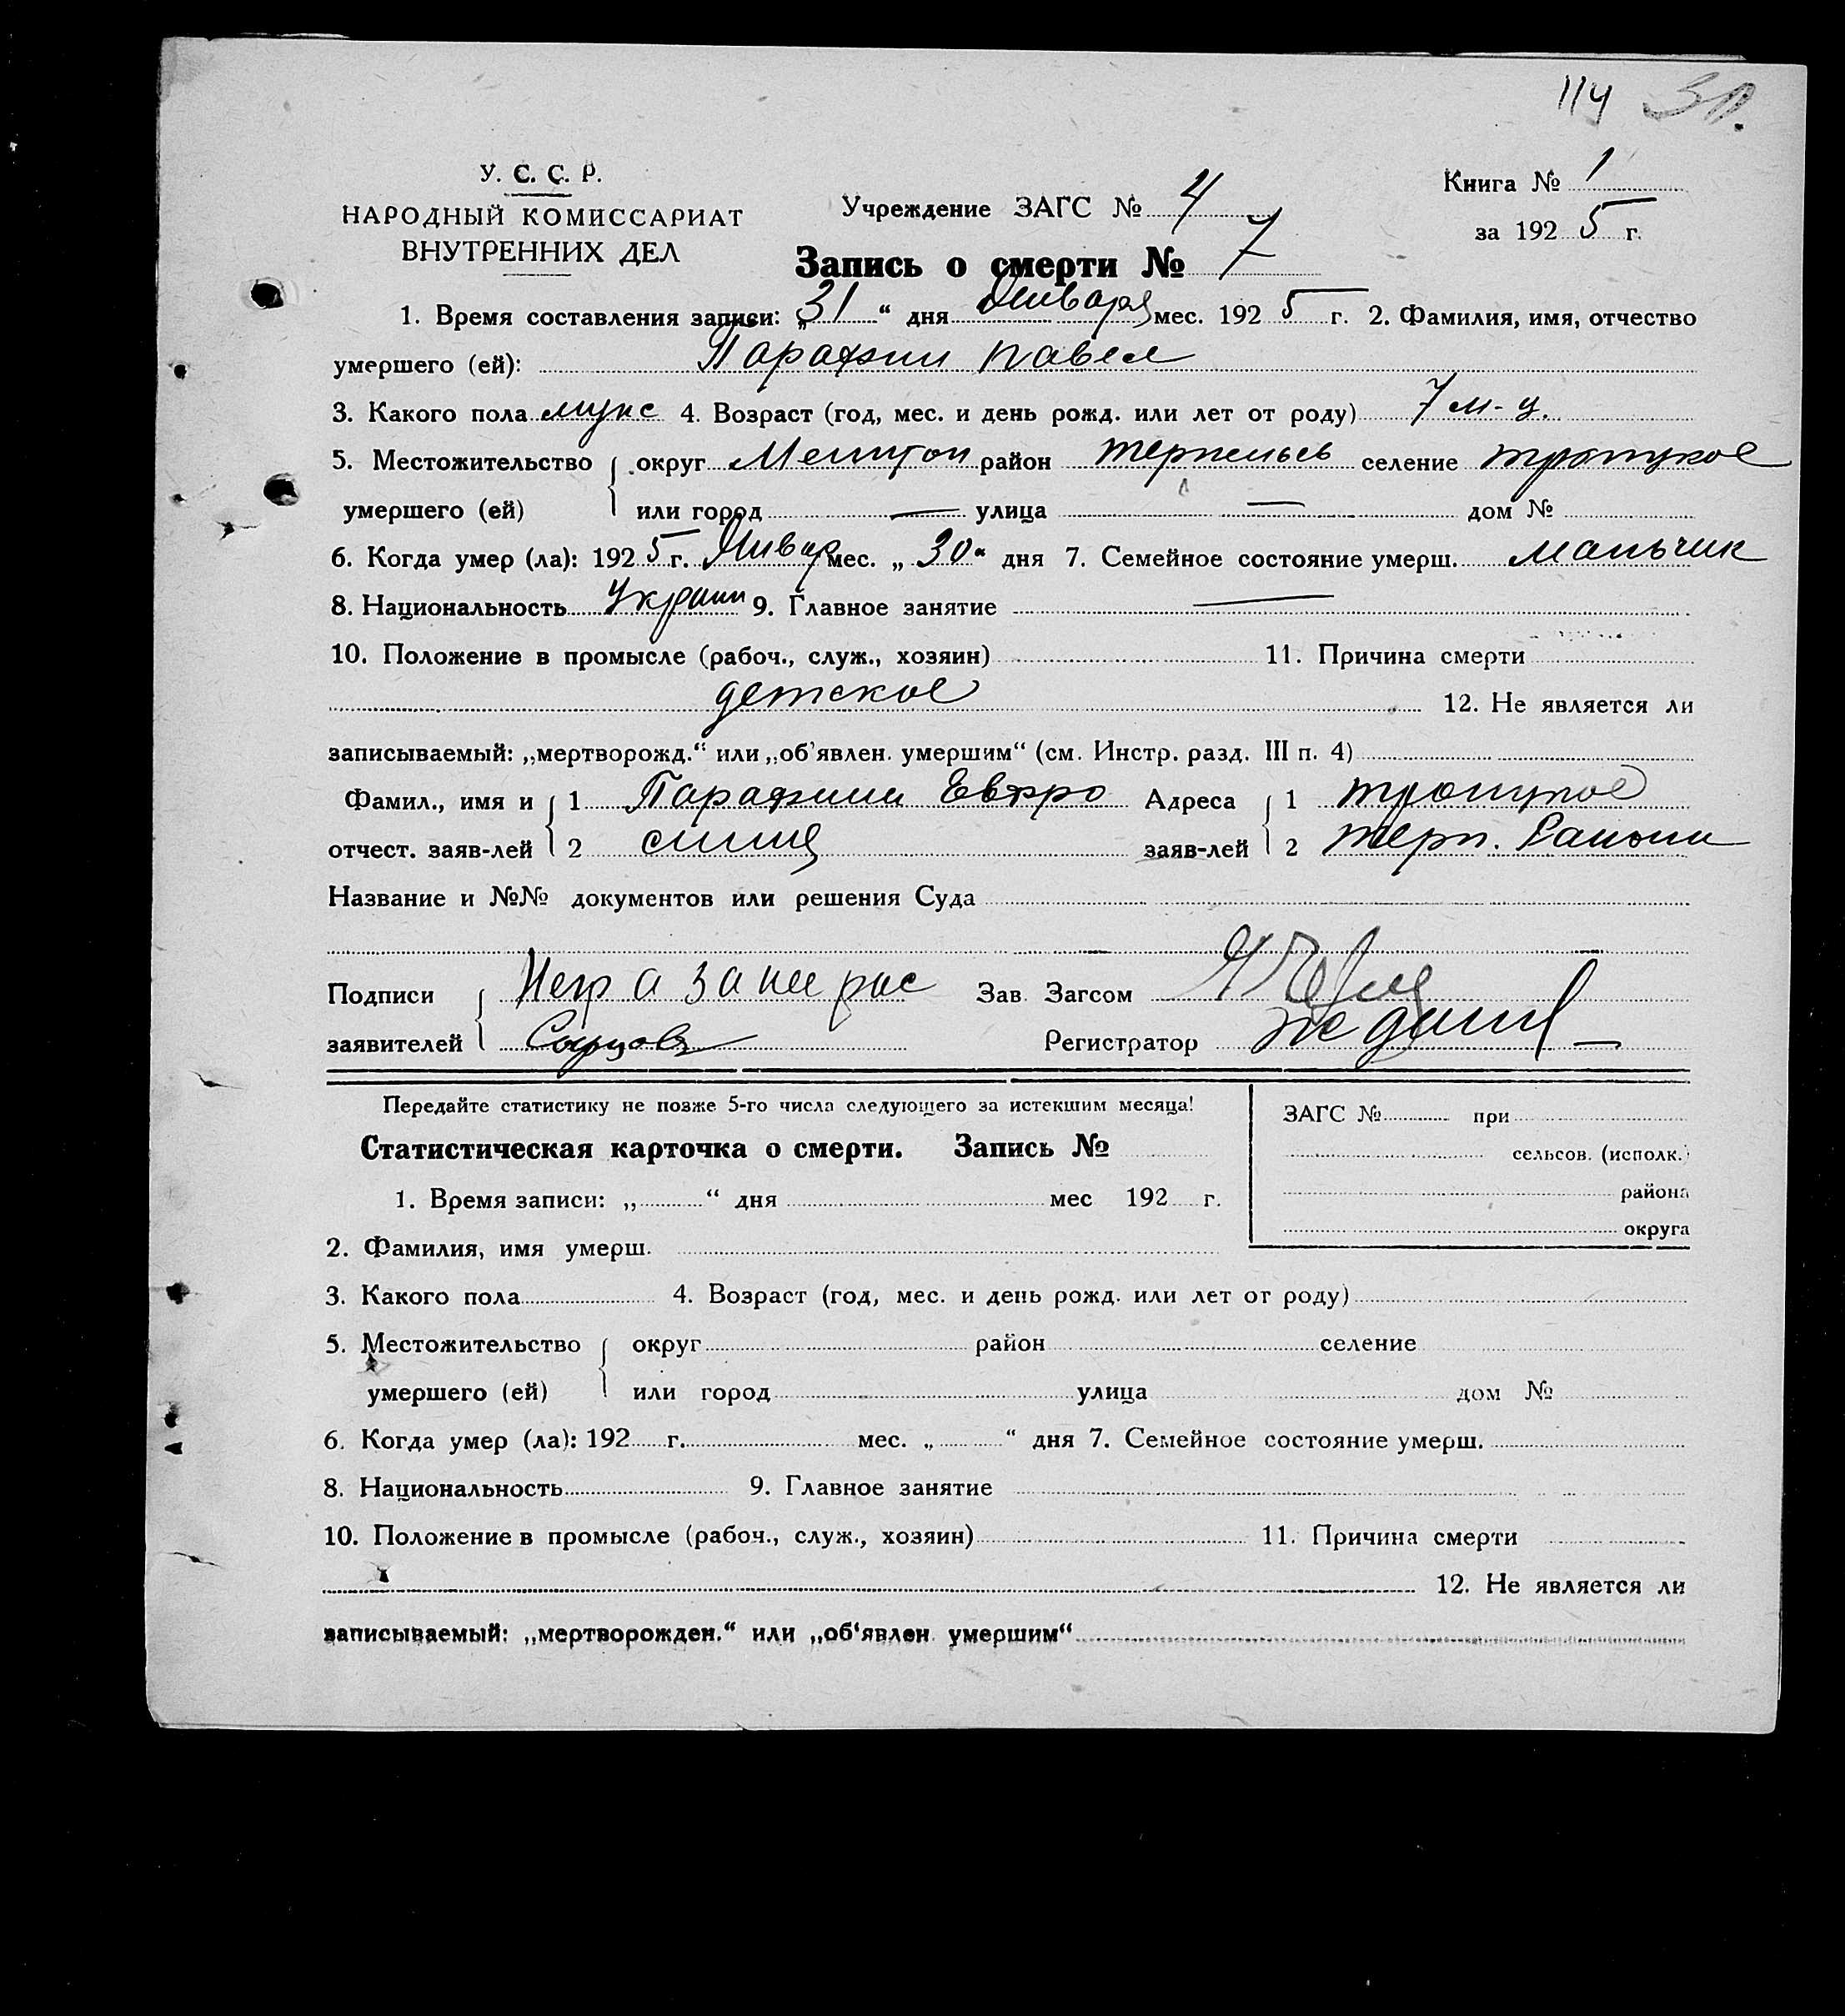 114 30.
У. С. С. Р.
НАРОДНЫЙ КОМИССАРИАТ
ВНУТРЕННИХ ДЕЛ
Учреждение ЗАГС № 4
Книга № 1
за 1925 г.
Запись о смерти № 7
1. Время составления записи: „31“ дня Января мес. 1925 г. 2. Фамилия, имя, отчество
умершего (ей): Павел
3. Какого пола мужс 4. Возраст (год, мес. и день рожд. или лет от роду) 7 м-ц.
5. Местожительство округ Мелитоп район Терпеньев селение троицкое
умершего (ей) или город — улица — дом №
6. Когда умер (ла): 1925 г. Январ мес. „30“ дня 7. Семейное состояние умерш. мальчик
8. Национальность Украин 9. Главное занятие —
10. Положение в промысле (рабоч., служ., хозяин) 11. Причина смерти
детское 12. Не является ли
записываемый: „мертворожд.“ или „об'явлен. умершим“ (см. Инстр. разд. III п. 4)
Фамил., имя и 1 Евфро Адреса 1 троицкое
отчест. заяв-лей 2 заяв-лей 2 терп. Района
Название и №№ документов или решения Суда
Подписи Негра за нее рас Зав. Загсом
заявителей Регистратор
Передайте статистику не позже 5-го числа следующего за истекшим месяца!
Статистическая карточка о смерти. Запись №
ЗАГС № при
сельсов. (исполк.)
района
округа
1. Время записи: „ “ дня мес 192 г.
2. Фамилия, имя умерш.
3. Какого пола 4. Возраст (год, мес. и день рожд. или лет от роду)
5. Местожительство округ район селение
умершего (ей) или город улица дом №
6. Когда умер (ла): 192 г. мес. „ “ дня 7. Семейное состояние умерш.
8. Национальность 9. Главное занятие
10. Положение в промысле (рабоч., служ., хозяин) 11. Причина смерти
12. Не является ли
записываемый: „мертворожден.“ или „об'явлен умершим“